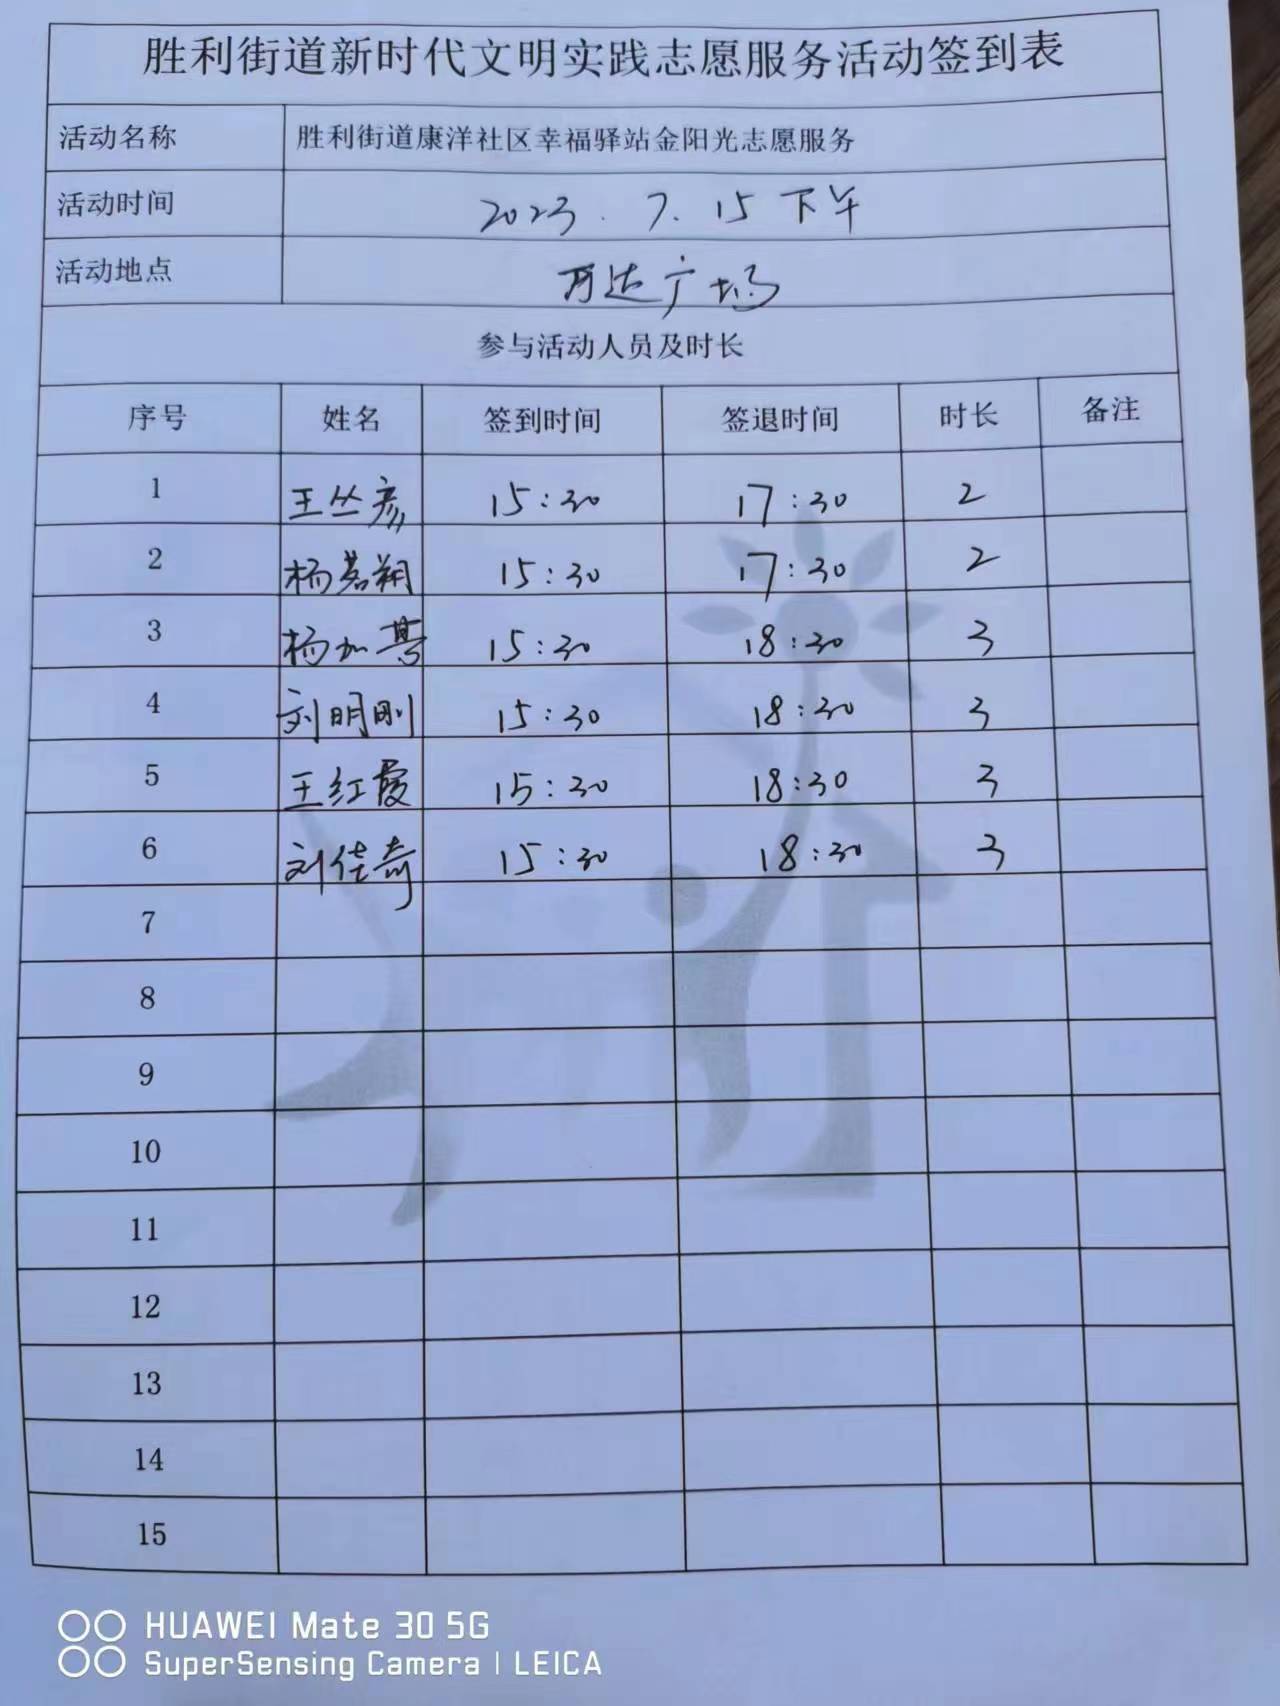 胜利街道新时代文明实践志愿服务活动签到表
活动名称 胜利街道康洋社区幸福驿站金阳光志愿服务
活动时间 2023.7.15下午
活动地点 万达广场
参与活动人员及时长
序号 姓名 签到时间 签退时间 时长 备注
1 王丛彦 15:30 17:30 2
2 杨茗翔 15:30 17:30 2
3 杨加 15:30 18:30 3
4 刘明刚 15:30 18:30 3
5 王红霞 15:30 18:30 3
6 刘佳奇 15:30 18:30 3
7
8
9
10
11
12
13
14
15
HUAWEI Mate 30 5G
SuperSensing Camera | LEICA